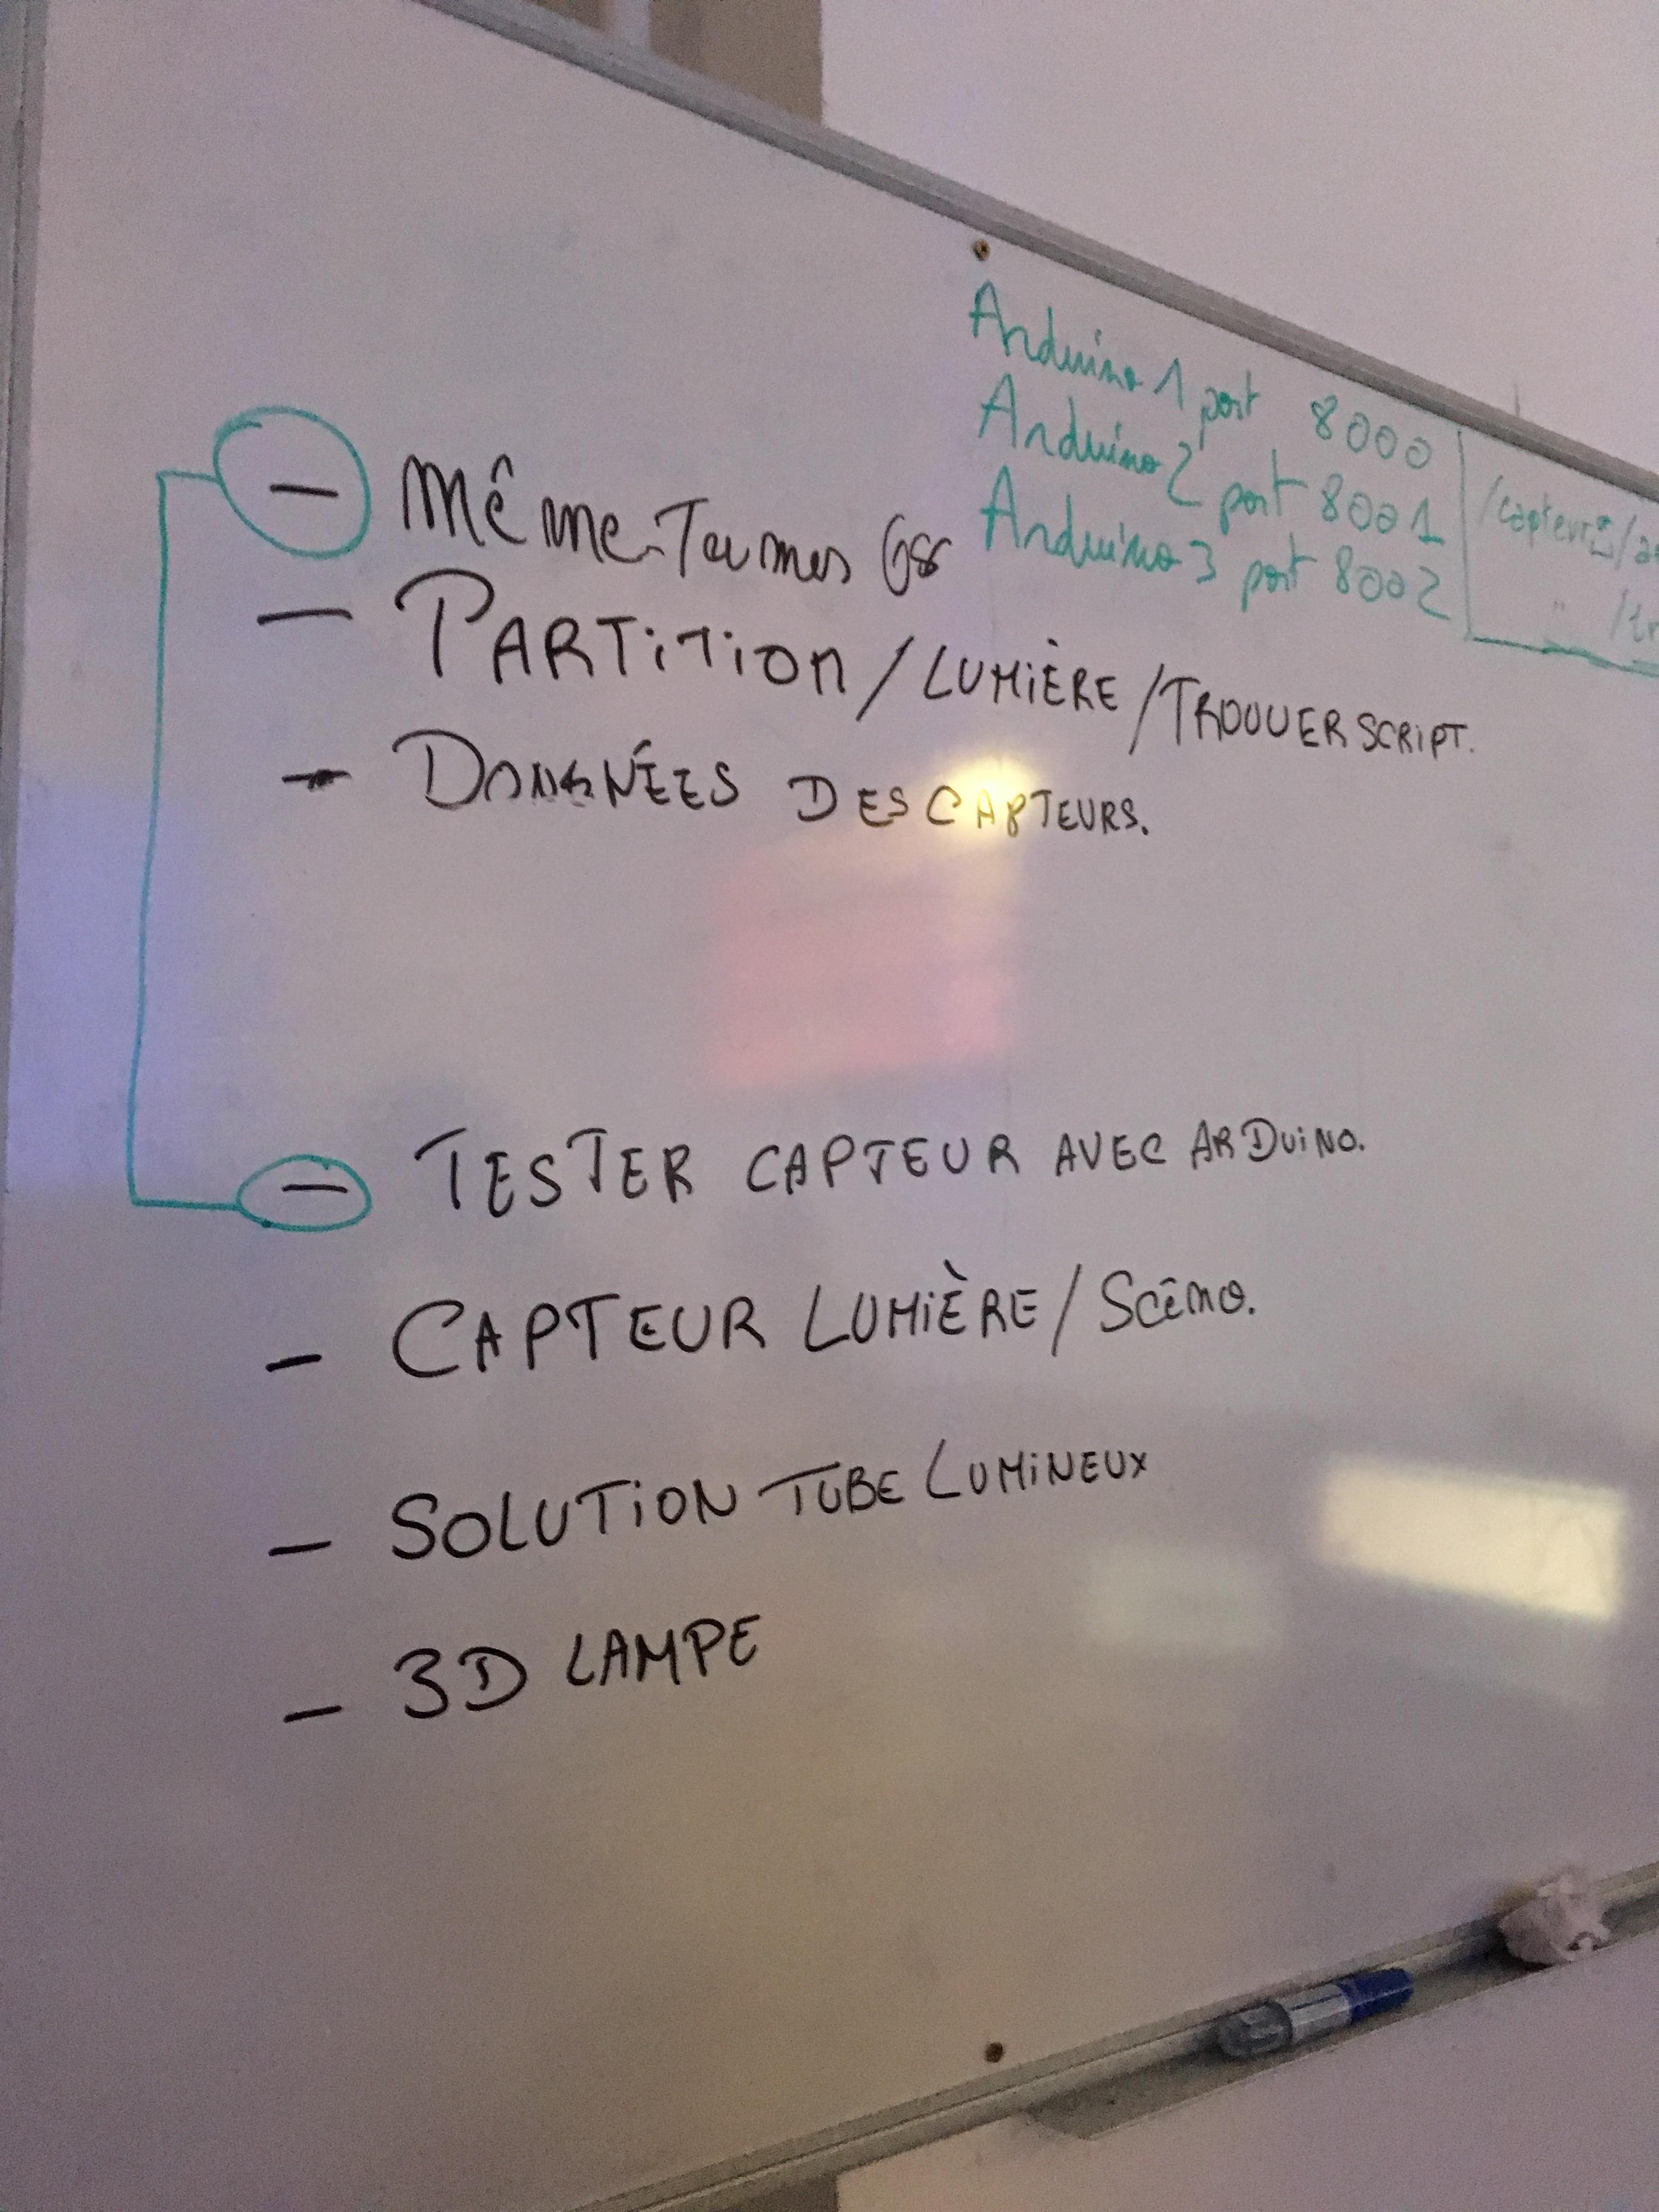 Arduino 1 port 8000
Arduino 2 port 8001
Arduino 3 port 8002
/capteur
- Même Termes
- PARTITION / LUMIÈRE / TROUVER SCRIPT.
- DONNÉES DES CAPTEURS.
- TESTER CAPTEUR AVEC ARDUINO.
- CAPTEUR LUMIÈRE / Scéno.
- SOLUTION TUBE LUMINEUX
- 3D LAMPE